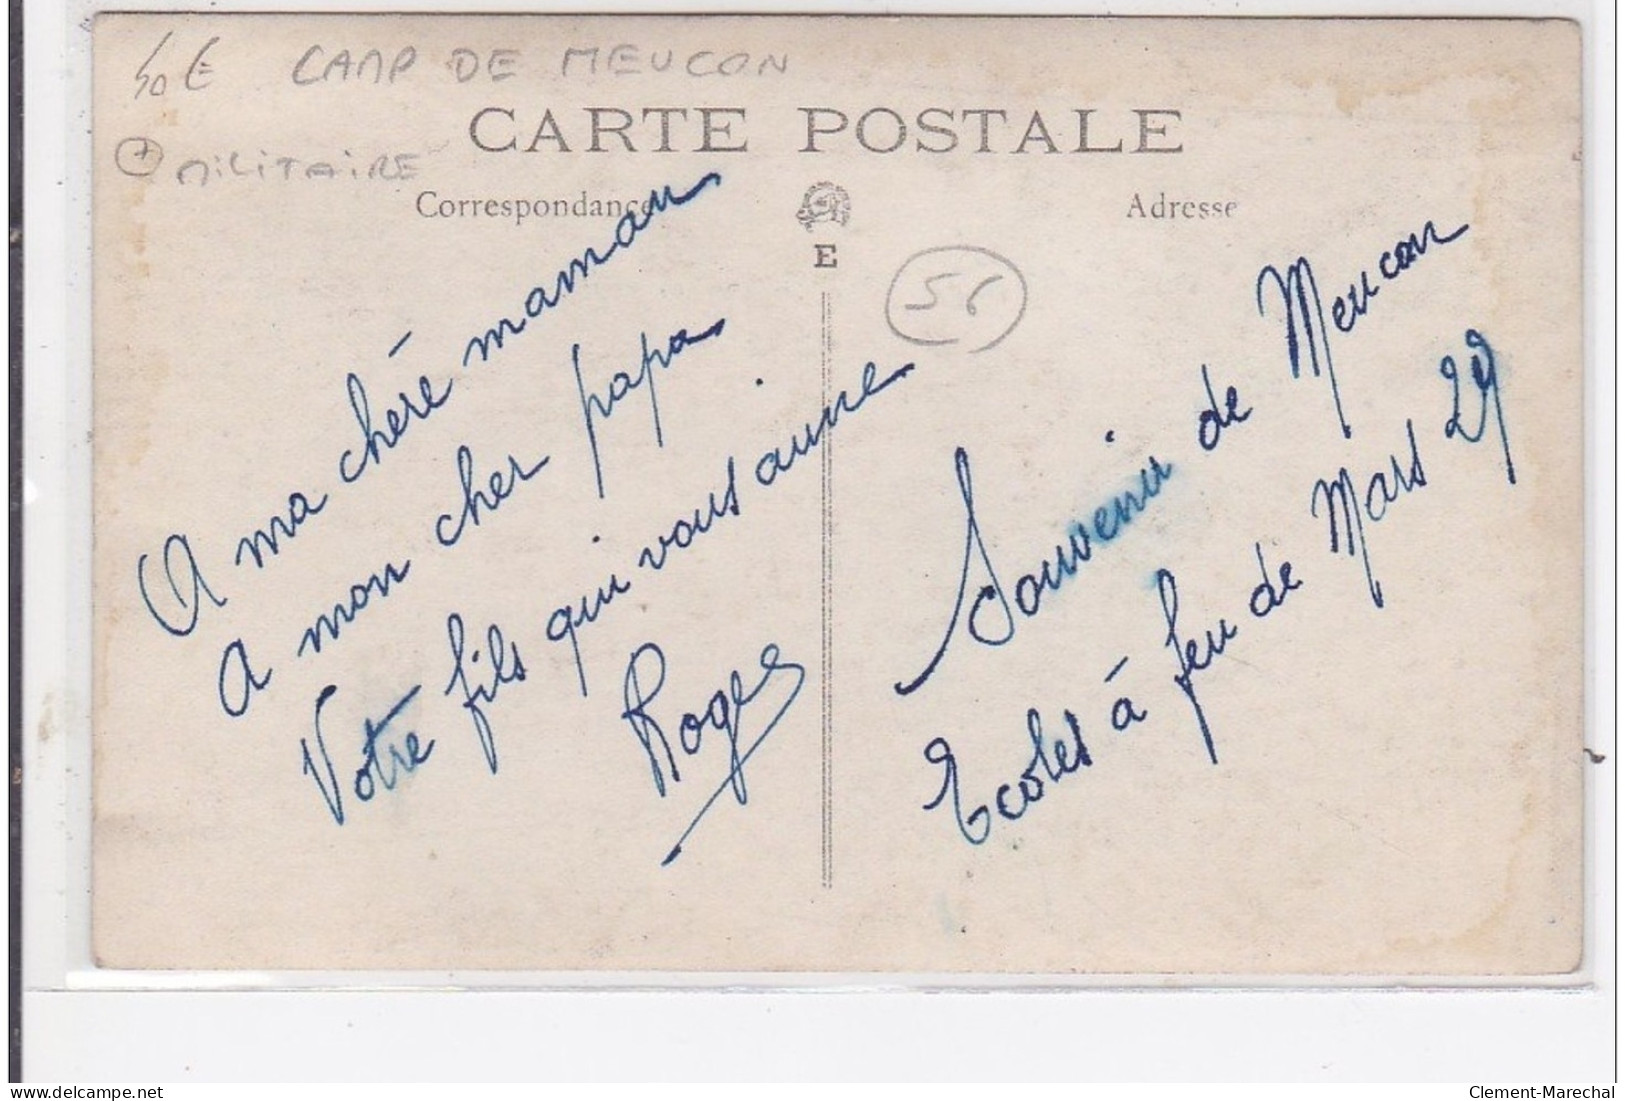 50€ CAMP DE MEUCON
+ MILITAIRE
CARTE POSTALE
Correspondance
Adresse
E
56
A ma chère maman
a mon cher papa
Votre fils qui vous aime
Roger
Souvenir de Meucon
Ecoles à feu de Mars 29
delcampe.net
Clement-Marechal